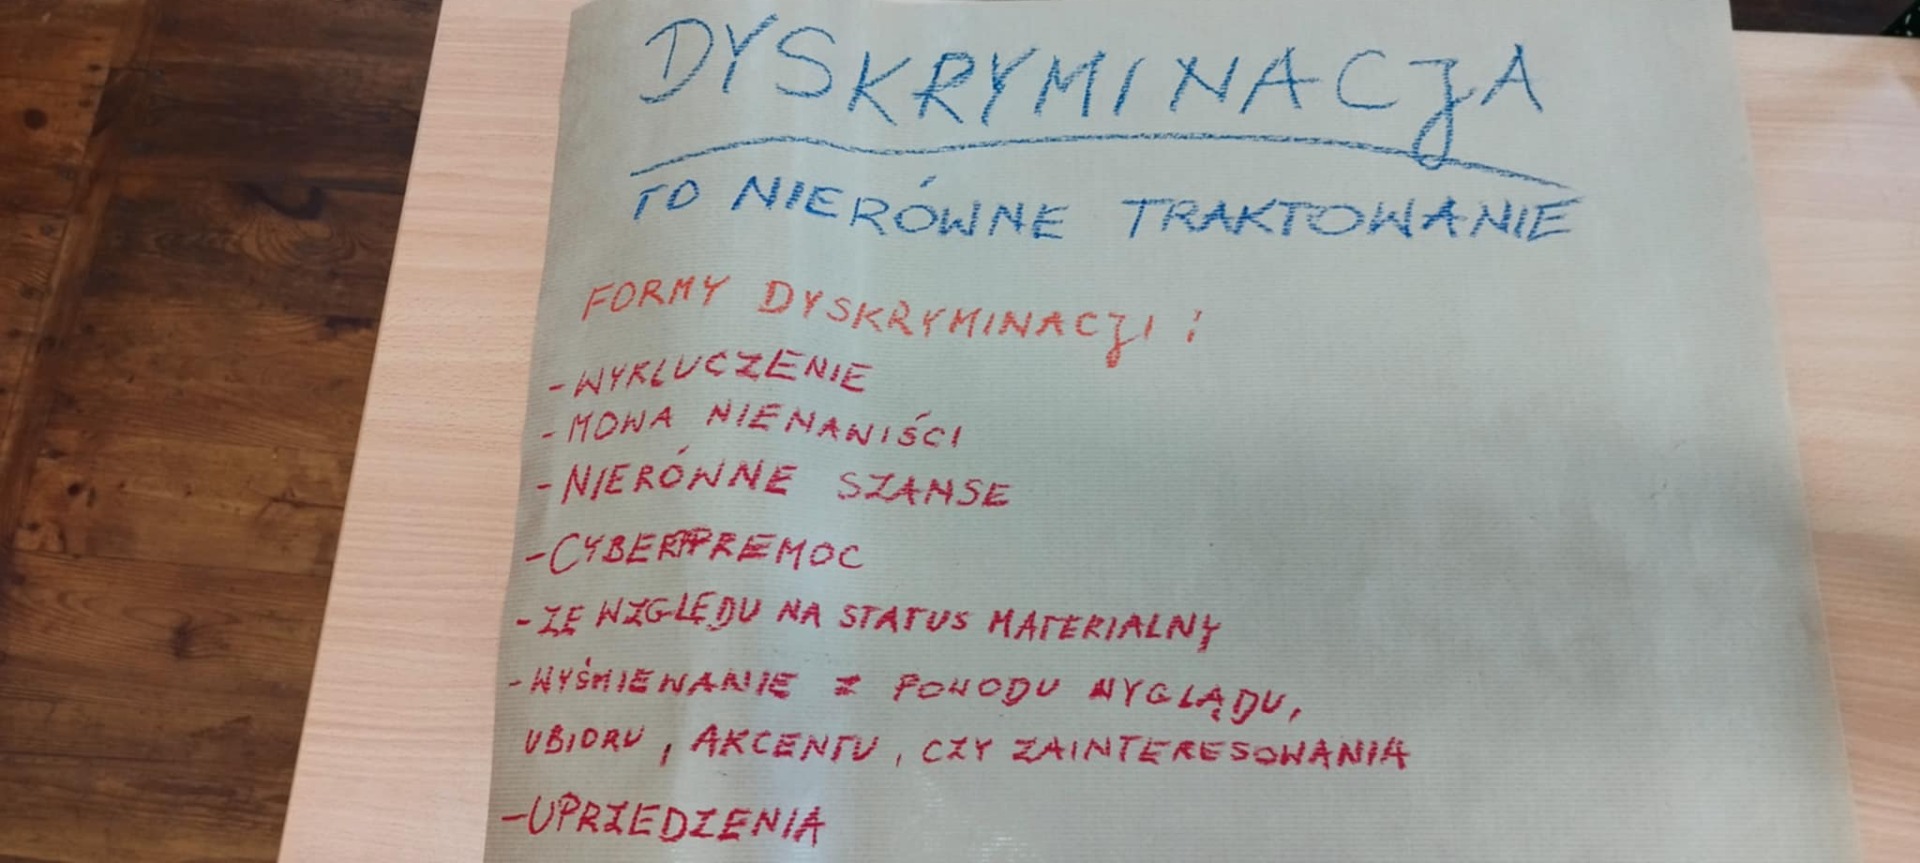 DYSKRYMINACJA
TO NIERÓWNE TRAKTOWANIE
FORMY DYSKRYMINACJI :
- WYKLUCZENIE
- MOWA NIENANIŚCI
- NIERÓWNE SZANSE
- CYBERPREMOC
- ZE WZGLĘDU NA STATUS MATERIALNY
- WYŚMIEWANIE Z POWODU WYGLĄDU,
UBIORU, AKCENTU, CZY ZAINTERESOWANIA
- UPRZEDZENIA